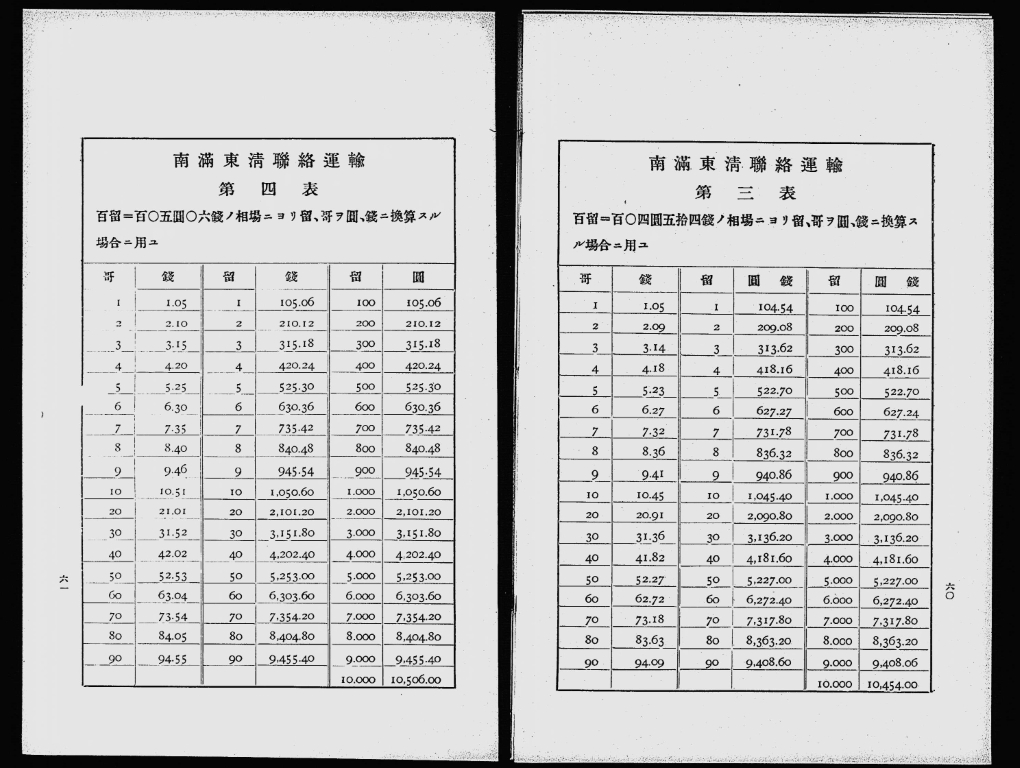 南滿東淸聯絡運輸
第 三 表
百留＝百〇四圓五拾四錢ノ相場ニヨリ留、哥ヲ圓、錢ニ換算ス
ル場合ニ用ユ
哥 錢 留 圓 錢 留 圓 錢
1 1.05 1 104.54 100 104.54
2 2.09 2 209.08 200 209.08
3 3.14 3 313.62 300 313.62
4 4.18 4 418.16 400 418.16
5 5.23 5 522.70 500 522.70
6 6.27 6 627.27 600 627.24
7 7.32 7 731.78 700 731.78
8 8.36 8 836.32 800 836.32
9 9.41 9 940.86 900 940.86
10 10.45 10 1,045.40 1.000 1,045.40
20 20.91 20 2,090.80 2.000 2,090.80
30 31.36 30 3,136.20 3.000 3,136.20
40 41.82 40 4,181.60 4.000 4,181.60
50 52.27 50 5,227.00 5.000 5,227.00
60 62.72 60 6,272.40 6.000 6,272.40
70 73.18 70 7,317.80 7.000 7,317.80
80 83.63 80 8,363.20 8.000 8,363.20
90 94.09 90 9,408.60 9.000 9,408.06
10.000 10,454.00
六〇
南滿東淸聯絡運輸
第 四 表
百留＝百〇五圓〇六錢ノ相場ニヨリ留、哥ヲ圓、錢ニ換算スル
場合ニ用ユ
哥 錢 留 錢 留 圓
1 1.05 1 105.06 100 105.06
2 2.10 2 210.12 200 210.12
3 3.15 3 315.18 300 315.18
4 4.20 4 420.24 400 420.24
5 5.25 5 525.30 500 525.30
6 6.30 6 630.36 600 630.36
7 7.35 7 735.42 700 735.42
8 8.40 8 840.48 800 840.48
9 9.46 9 945.54 900 945.54
10 10.51 10 1,050.60 1.000 1,050.60
20 21.01 20 2,101.20 2.000 2,101.20
30 31.52 30 3,151.80 3.000 3,151.80
40 42.02 40 4,202.40 4.000 4,202.40
50 52.53 50 5,253.00 5.000 5,253.00
60 63.04 60 6,303.60 6.000 6,303.60
70 73.54 70 7,354.20 7.000 7,354.20
80 84.05 80 8,404.80 8.000 8,404.80
90 94.55 90 9,455.40 9.000 9,455.40
10.000 10,506.00
六一